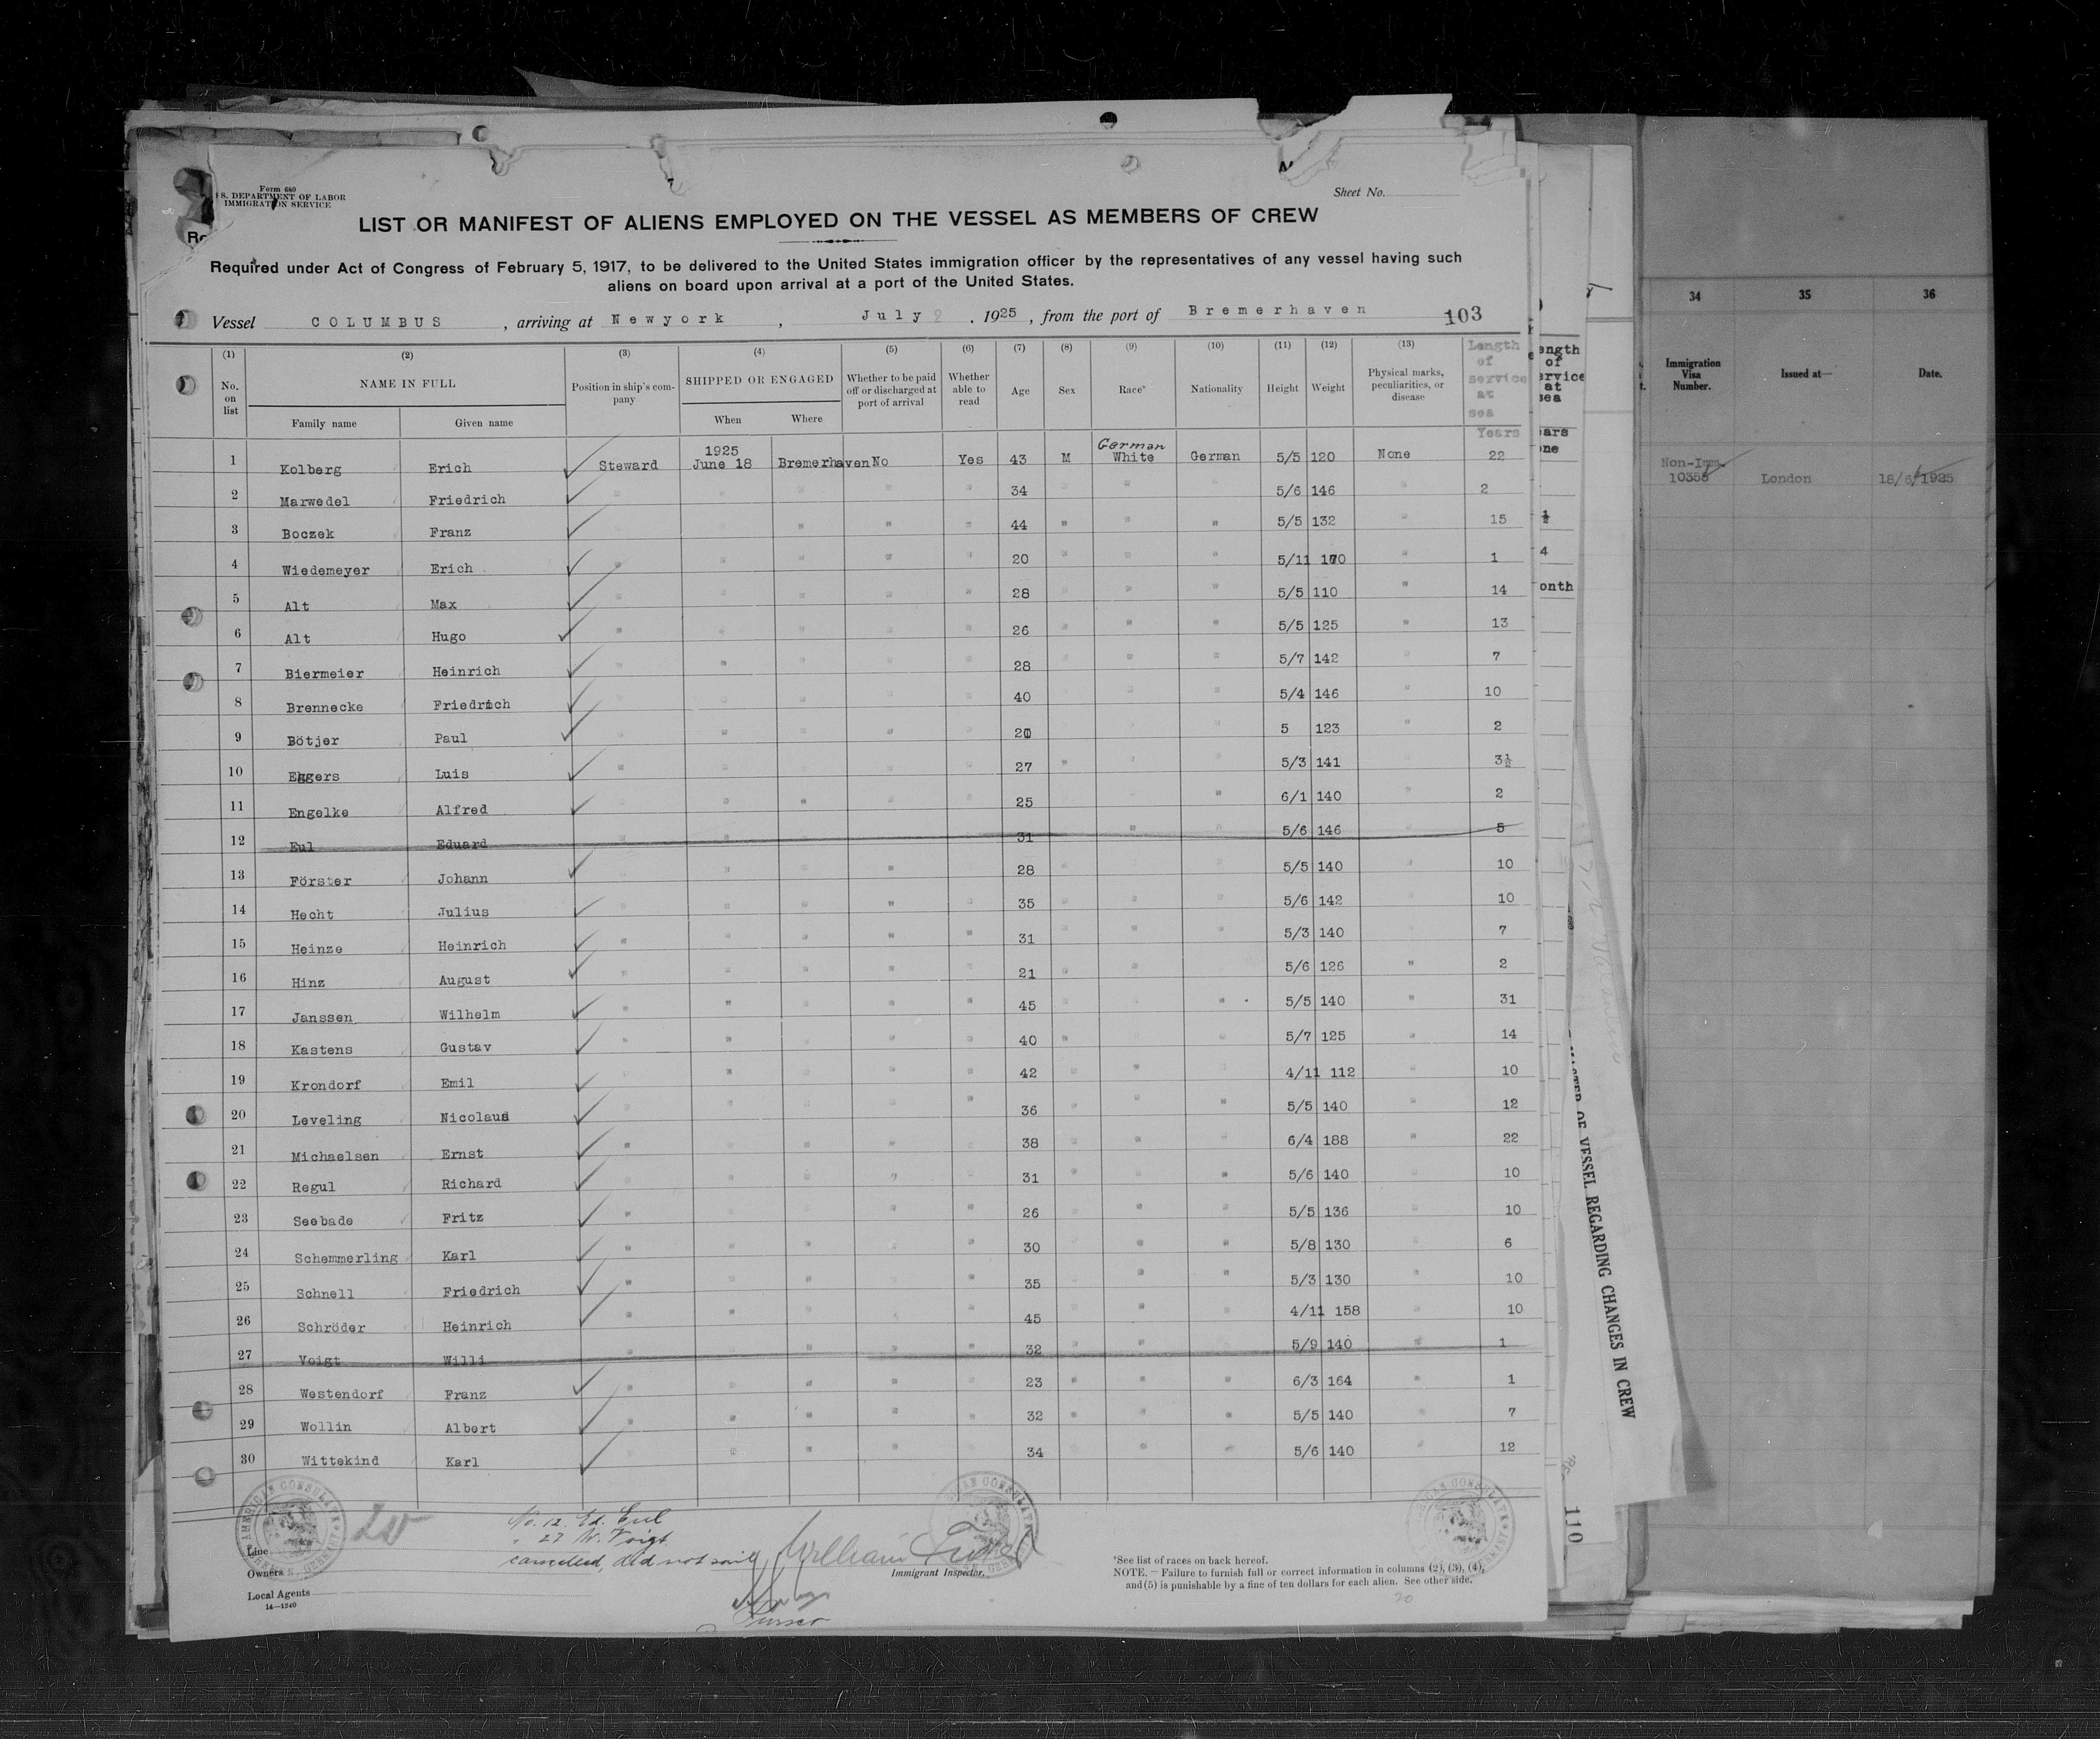 Form 680
S. DEPARTMENT OF LABOR
IMMIGRATION SERVICE
Sheet No.
LIST OR MANIFEST OF ALIENS EMPLOYED ON THE VESSEL AS MEMBERS OF CREW
Required under Act of Congress of February 5, 1917, to be delivered to the United States immigration officer by the representatives of any vessel having such
aliens on board upon arrival at a port of the United States.
Vessel COLUMBUS , arriving at Newyork , July 2 , 1925 , from the port of Bremerhaven 103
(1) (2) (3) (4) (5) (6) (7) (8) (9) (10) (11) (12) (13)
No. on list NAME IN FULL Family name Given name Position in ship's company SHIPPED OR ENGAGED When Where Whether to be paid off or discharged at port of arrival Whether able to read Age Sex Race* Nationality Height Weight Physical marks, peculiarities, or disease Length of service at sea Years
1 Kolberg Erich Steward 1925 June 18 Bremerhaven No Yes 43 M German White German 5/5 120 None 22
2 Marwedel Friedrich " " " " " 34 " " " 5/6 146 " 2
3 Boczek Franz " " " " " 44 " " " 5/5 132 " 15
4 Wiedemeyer Erich " " " " " 20 " " " 5/11 170 " 1
5 Alt Max " " " " " 28 " " " 5/5 110 " 14
6 Alt Hugo " " " " " 26 " " " 5/5 125 " 13
7 Biermeier Heinrich " " " " " 28 " " " 5/7 142 " 7
8 Brennecke Friedrich " " " " " 40 " " " 5/4 146 " 10
9 Bötjer Paul " " " " " " " " 5 123 " 2
10 Eggers Luis " " " " " 27 " " " 5/3 141 " 3½
11 Engelke Alfred " " " " " 25 " " " 6/1 140 " 2
12 Eul Eduard " " " " " 31 " " " 5/6 146 " 5
13 Förster Johann " " " " " 28 " " " 5/5 140 " 10
14 Hecht Julius " " " " " 35 " " " 5/6 142 " 10
15 Heinze Heinrich " " " " " 31 " " " 5/3 140 " 7
16 Hinz August " " " " " 21 " " " 5/6 126 " 2
17 Janssen Wilhelm " " " " " 45 " " " 5/5 140 " 31
18 Kastens Gustav " " " " " 40 " " " 5/7 125 " 14
19 Krondorf Emil " " " " " 42 " " " 4/11 112 " 10
20 Leveling Nicolaus " " " " " 36 " " " 5/5 140 " 12
21 Michaelsen Ernst " " " " " 38 " " " 6/4 188 " 22
22 Regul Richard " " " " " 31 " " " 5/6 140 " 10
23 Seebade Fritz " " " " " 26 " " " 5/5 136 " 10
24 Schemmerling Karl " " " " " 30 " " " 5/8 130 " 6
25 Schnell Friedrich " " " " " 35 " " " 5/3 130 " 10
26 Schröder Heinrich " " " " " 45 " " " 4/11 158 " 10
27 Voigt Willi " " " " " 32 " " " 5/9 140 " 1
28 Westendorf Franz " " " " " 23 " " " 6/3 164 " 1
29 Wollin Albert " " " " " 32 " " " 5/5 140 " 7
30 Wittekind Karl " " " " " 34 " " " 5/6 140 " 12
No. 12. Ed. Eul
" 27 W. Voigt
cancelled, did not sail
AMERICAN CONSULATE
Line
Owners
Local Agents
14—1240
William
Immigrant Inspector.
Purser
*See list of races on back hereof.
NOTE. — Failure to furnish full or correct information in columns (2), (3), (4),
and (5) is punishable by a fine of ten dollars for each alien. See other side.
20
ength
of
ervice
at
sea
ars
ne
½
4
onth
OF VESSEL REGARDING CHANGES IN CREW
110
34 35 36
Immigration Visa Number. Issued at— Date.
Non-Imm. 10355 London 18/6/1925